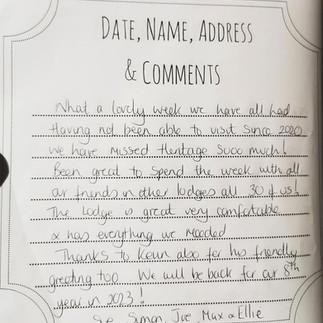 DATE, NAME, ADDRESS
& COMMENTS
What a lovely week we have all had
Having not been able to visit since 2020
we have missed Heritage Sooo much!
Been great to spend the week with all
our friends in other lodges all 30 of us!
The lodge is great very comfortable
& has everything we needed
Thanks to Kevin also for his friendly
greeting too We will be back for our 8th
year in 2023!
Simon, Max & Ellie